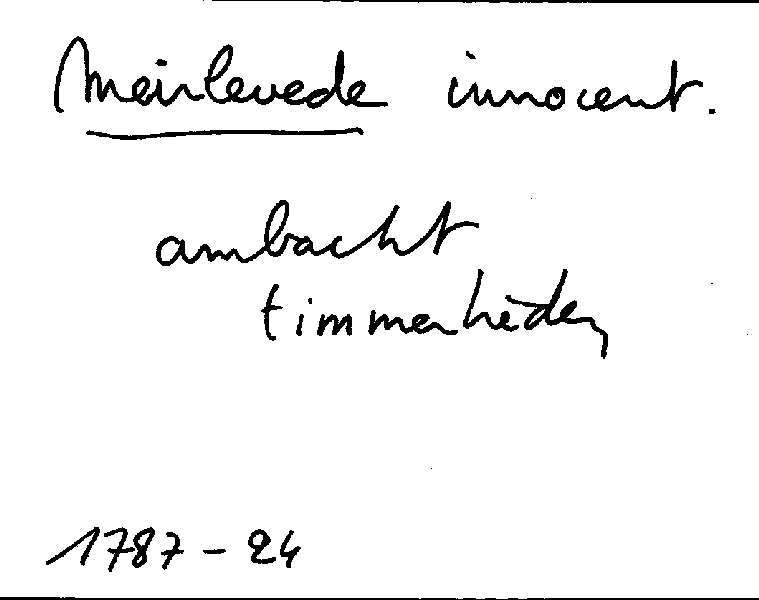 Meirlevede innocent.
ambacht
timmerlieden
1787 - 24